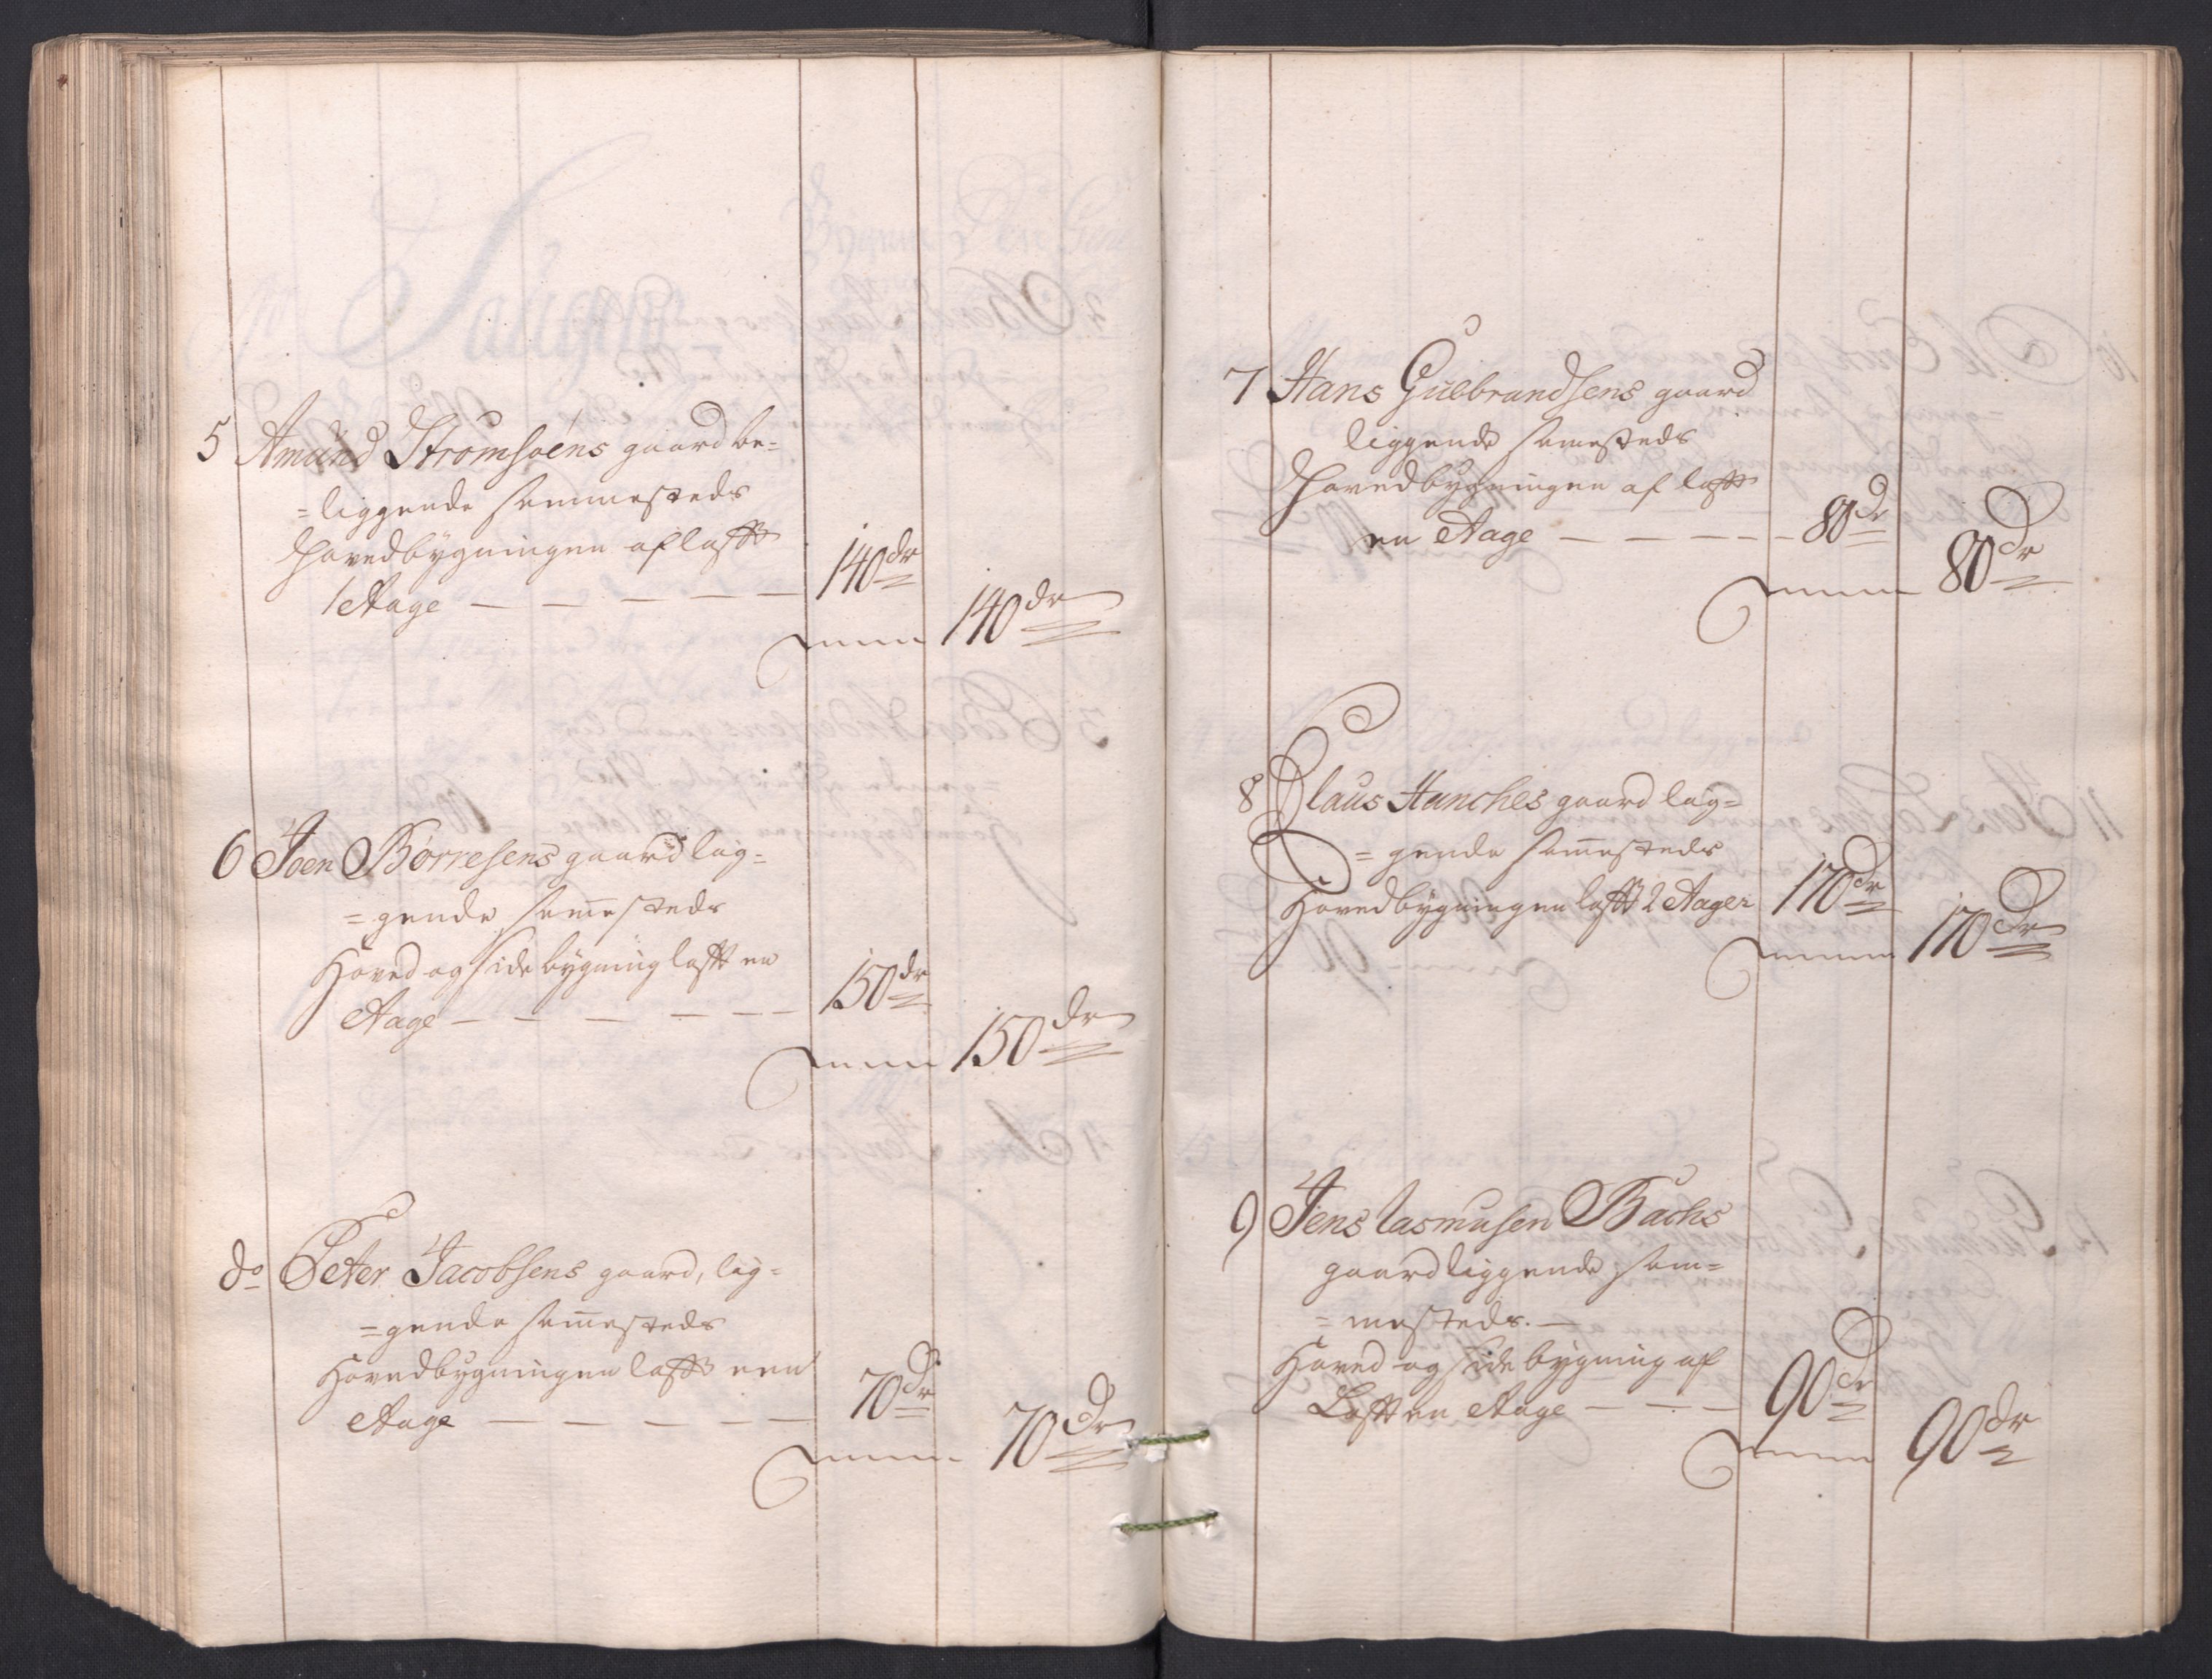 5 Amund Strömsöens gaard be-
=liggende sammesteds
Hovedbÿgningen af lafft
1 Etage — — — — — 140 dr
Summa 140 dr
6 Joen Börresens gaard lig-
=gende sam̄esteds
Hoved og side bÿgning lafft en
Etage — — — — — — 150 dr
Summa 150 dr
do Peter Jacobsens gaard, lig-
=gende sam̄esteds
Hovedbÿgningen lafft een
Etage — — — — — 70 dr
Summa 70 dr
7 Hans Gulbrandsens gaard
liggende samesteds
Hovedbÿgningen af lafft
en Etage — — — — — 80 dr
Summa 80 dr
8 Claus Hanches gaard lig=
=gende sam̄esteds
Hovedbÿgningen lafft 2 Etager 170 dr
Summa 170 dr
9 Jens Rasmusen Bachs
gaard liggende sam=
=mesteds. —
Hoved og side bÿgning af
Lafft en Etage — — — 90 dr
Summa 90 dr